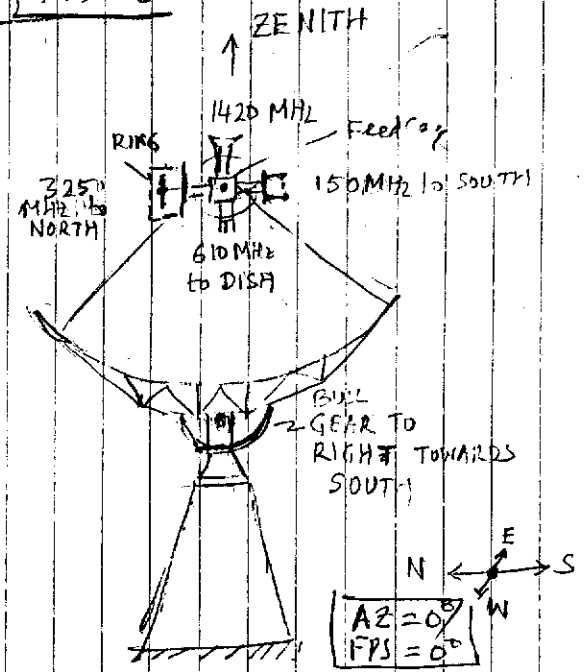 ZENITH
1420 MHz
RING
Feed
325
MHz to
NORTH
150 MHz to SOUTH
610 MHz
to DISH
BULL
GEAR TO
RIGHT TOWARDS
SOUTH
E
N
S
W
AZ = 0°
FPS = 0°